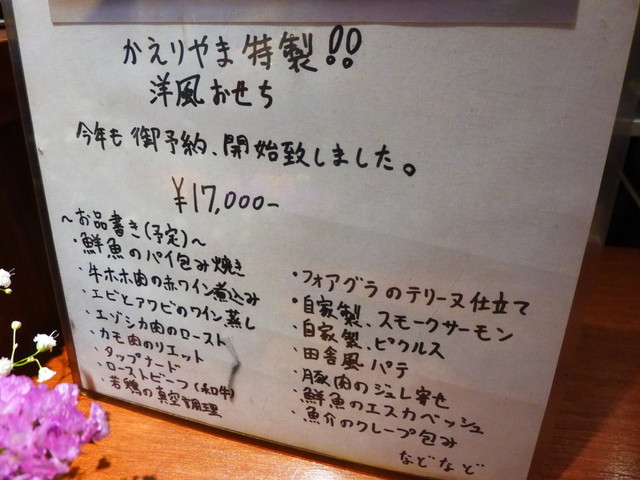 かえりやま特製!!
洋風おせち
今年も御予約、開始致しました。
¥17,000-
〜お品書き(予定)〜
・鮮魚のパイ包み焼き
・牛ホホ肉の赤ワイン煮込み
・エビとアワビのワイン蒸し
・エゾシカ肉のロースト
・カモ肉のリエット
・タップナード
・ローストビーフ(和牛)
・若鶏の真空調理
・フォアグラのテリーヌ仕立て
・自家製、スモークサーモン
・自家製、ピクルス
・田舎風パテ
・豚肉のジュレ寄せ
・鮮魚のエスカベッシュ
・魚介のクレープ包み
などなど